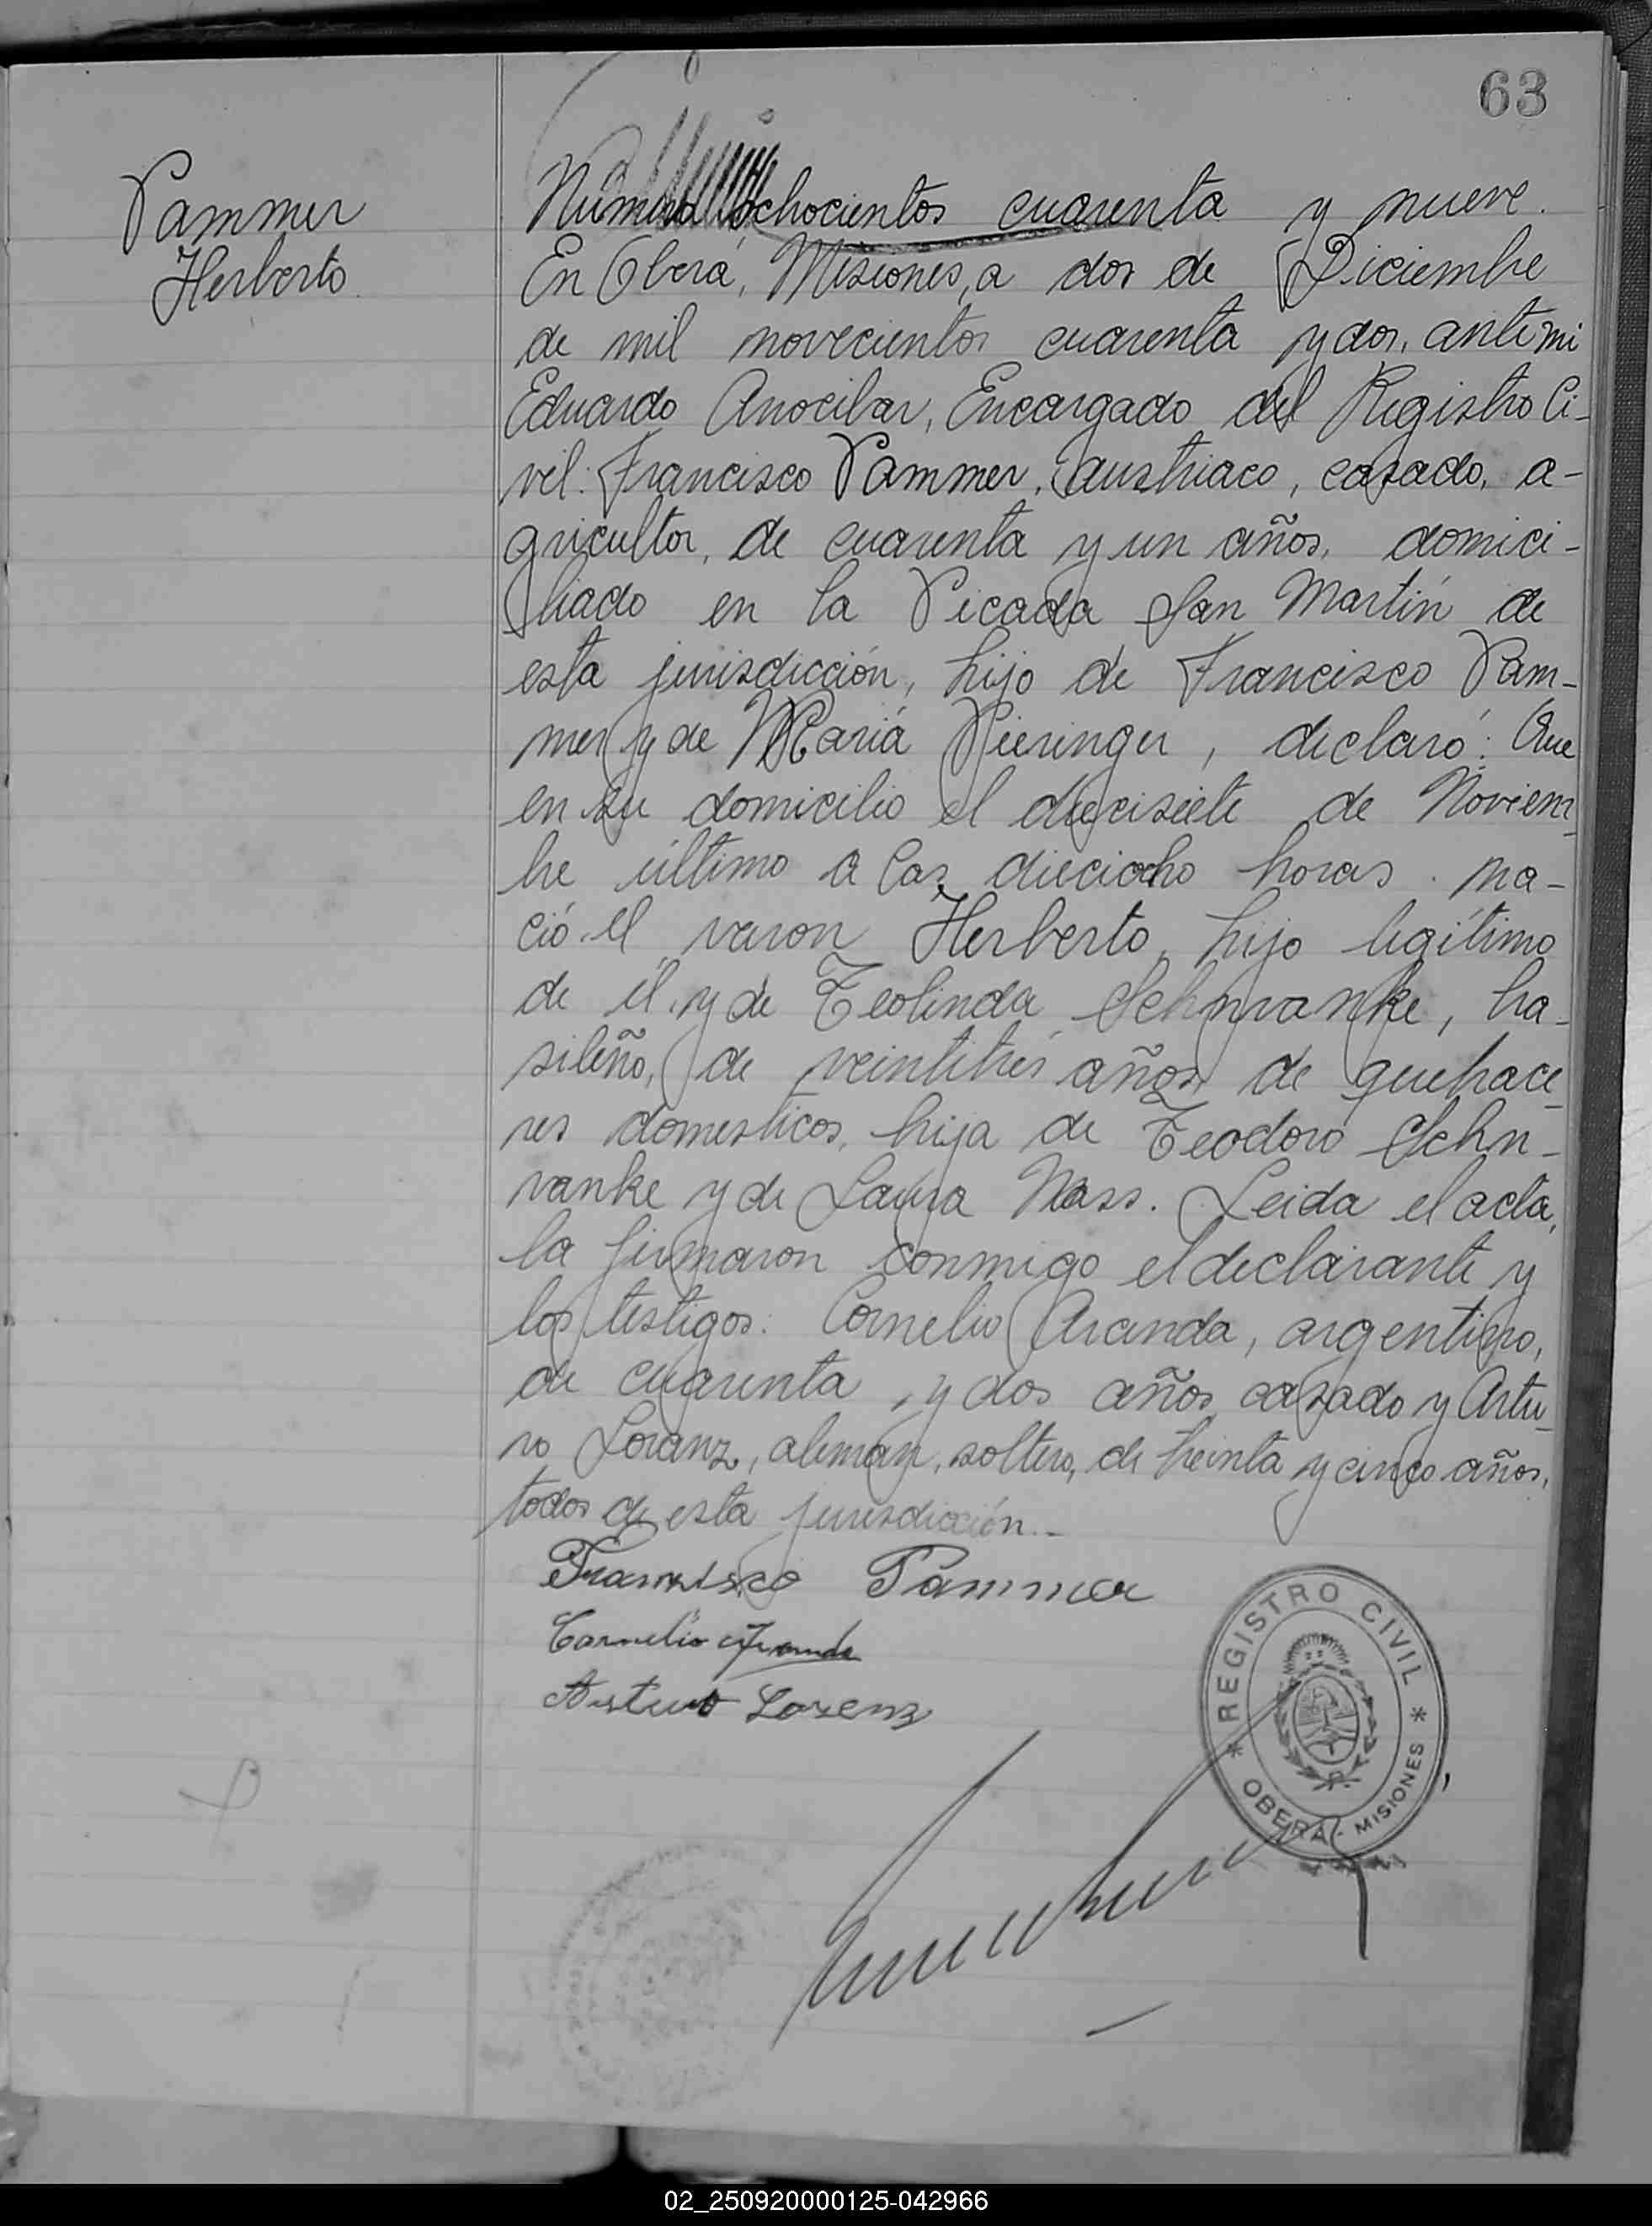 63
Pammer
Herberto.
Número ochocientos cuarenta y nueve.
En Oberá, Misiones, a dos de Diciembre
de mil novecientos cuarenta y dos, ante mi
Eduardo Anocibar, Encargado del Registro Ci-
vil: Francisco Pammer, austriaco, casado, a-
gricultor, de cuarenta y un años, domici-
liado en la Picada San Martín de
esta jurisdicción, hijo de Francisco Pam-
mer y de María Pieringer, declaró: Que
en su domicilio el diecisiete de Noviem-
bre último a las dieciocho horas na-
ció el varon Herberto, hijo legítimo
de él y de Teolinda Schnvanke, bra-
sileño, de veintitrés años, de quehace-
res domesticos, hija de Teodoro Schn-
vanke y de Laura Nass. Leida el acta,
la firmaron conmigo el declarante y
los testigos: Cornelio Aranda, argentino,
de cuarenta y dos años, casado y Artu-
ro Loranz, alemán, soltero, de treinta y cinco años,
todos de esta jurisdicción.-
Francisco Pammer
Cornelio Aranda
Arturo Lorenz
* REGISTRO CIVIL *
OBERÁ - MISIONES
02_250920000125-042966